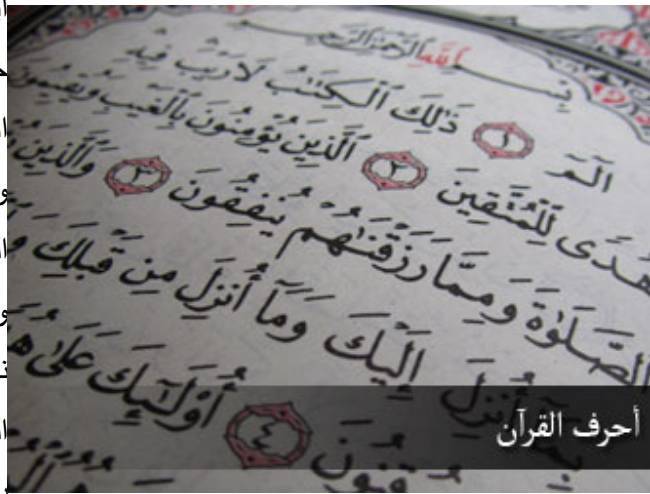 بسم الله الرحمن الرحيم
الٓمٓ ١ ذَٰلِكَ ٱلْكِتَٰبُ لَا رَيْبَ فِيهِ
هُدًى لِّلْمُتَّقِينَ ٢ ٱلَّذِينَ يُؤْمِنُونَ بِٱلْغَيْبِ وَيُقِيمُونَ
ٱلصَّلَوٰةَ وَمِمَّا رَزَقْنَٰهُمْ يُنفِقُونَ ٣ وَٱلَّذِينَ
أُنزِلَ إِلَيْكَ وَمَآ أُنزِلَ مِن قَبْلِكَ
٤ أُو۟لَٰٓئِكَ عَلَىٰ
أحرف القرآن